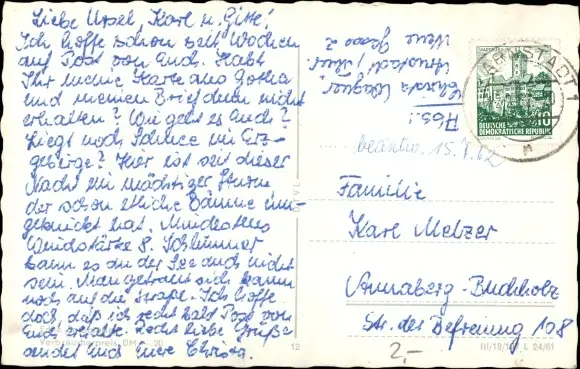 Liebe Ursel, Karl u. Gitte!
Ich hoffe schon seit Wochen
auf Post von Euch. Habt
Ihr meine Karte aus Gotha
und meinen Brief denn nicht
erhalten? Wie geht es Euch?
Liegt noch Schnee im Erz-
gebirge? Hier ist seit dieser
Nacht ein mächtiger Sturm
der schon etliche Bäume um-
geknickt hat. Mindestens
Windstärke 8. Schlimmer
kann es an der See auch nicht
sein. Man getraut sich kaum
noch auf die Straße. Ich hoffe
doch, daß ich recht bald Post von
Euch erhalte. Recht liebe Grüße
sendet Euch Eure Christa.
Verbraucherpreis DM -,20
12
Abs.:
Christa Wagner
Arnstadt / Thür.
Neue Gasse 2
ARNSTADT 1
n
WARTBURG
10
DEUTSCHE
DEMOKRATISCHE REPUBLIK
beantw. 15.
Familie
Karl Melzer
Annaberg-Buchholz
Str. der Befreiung 108
2,-
L 24/61